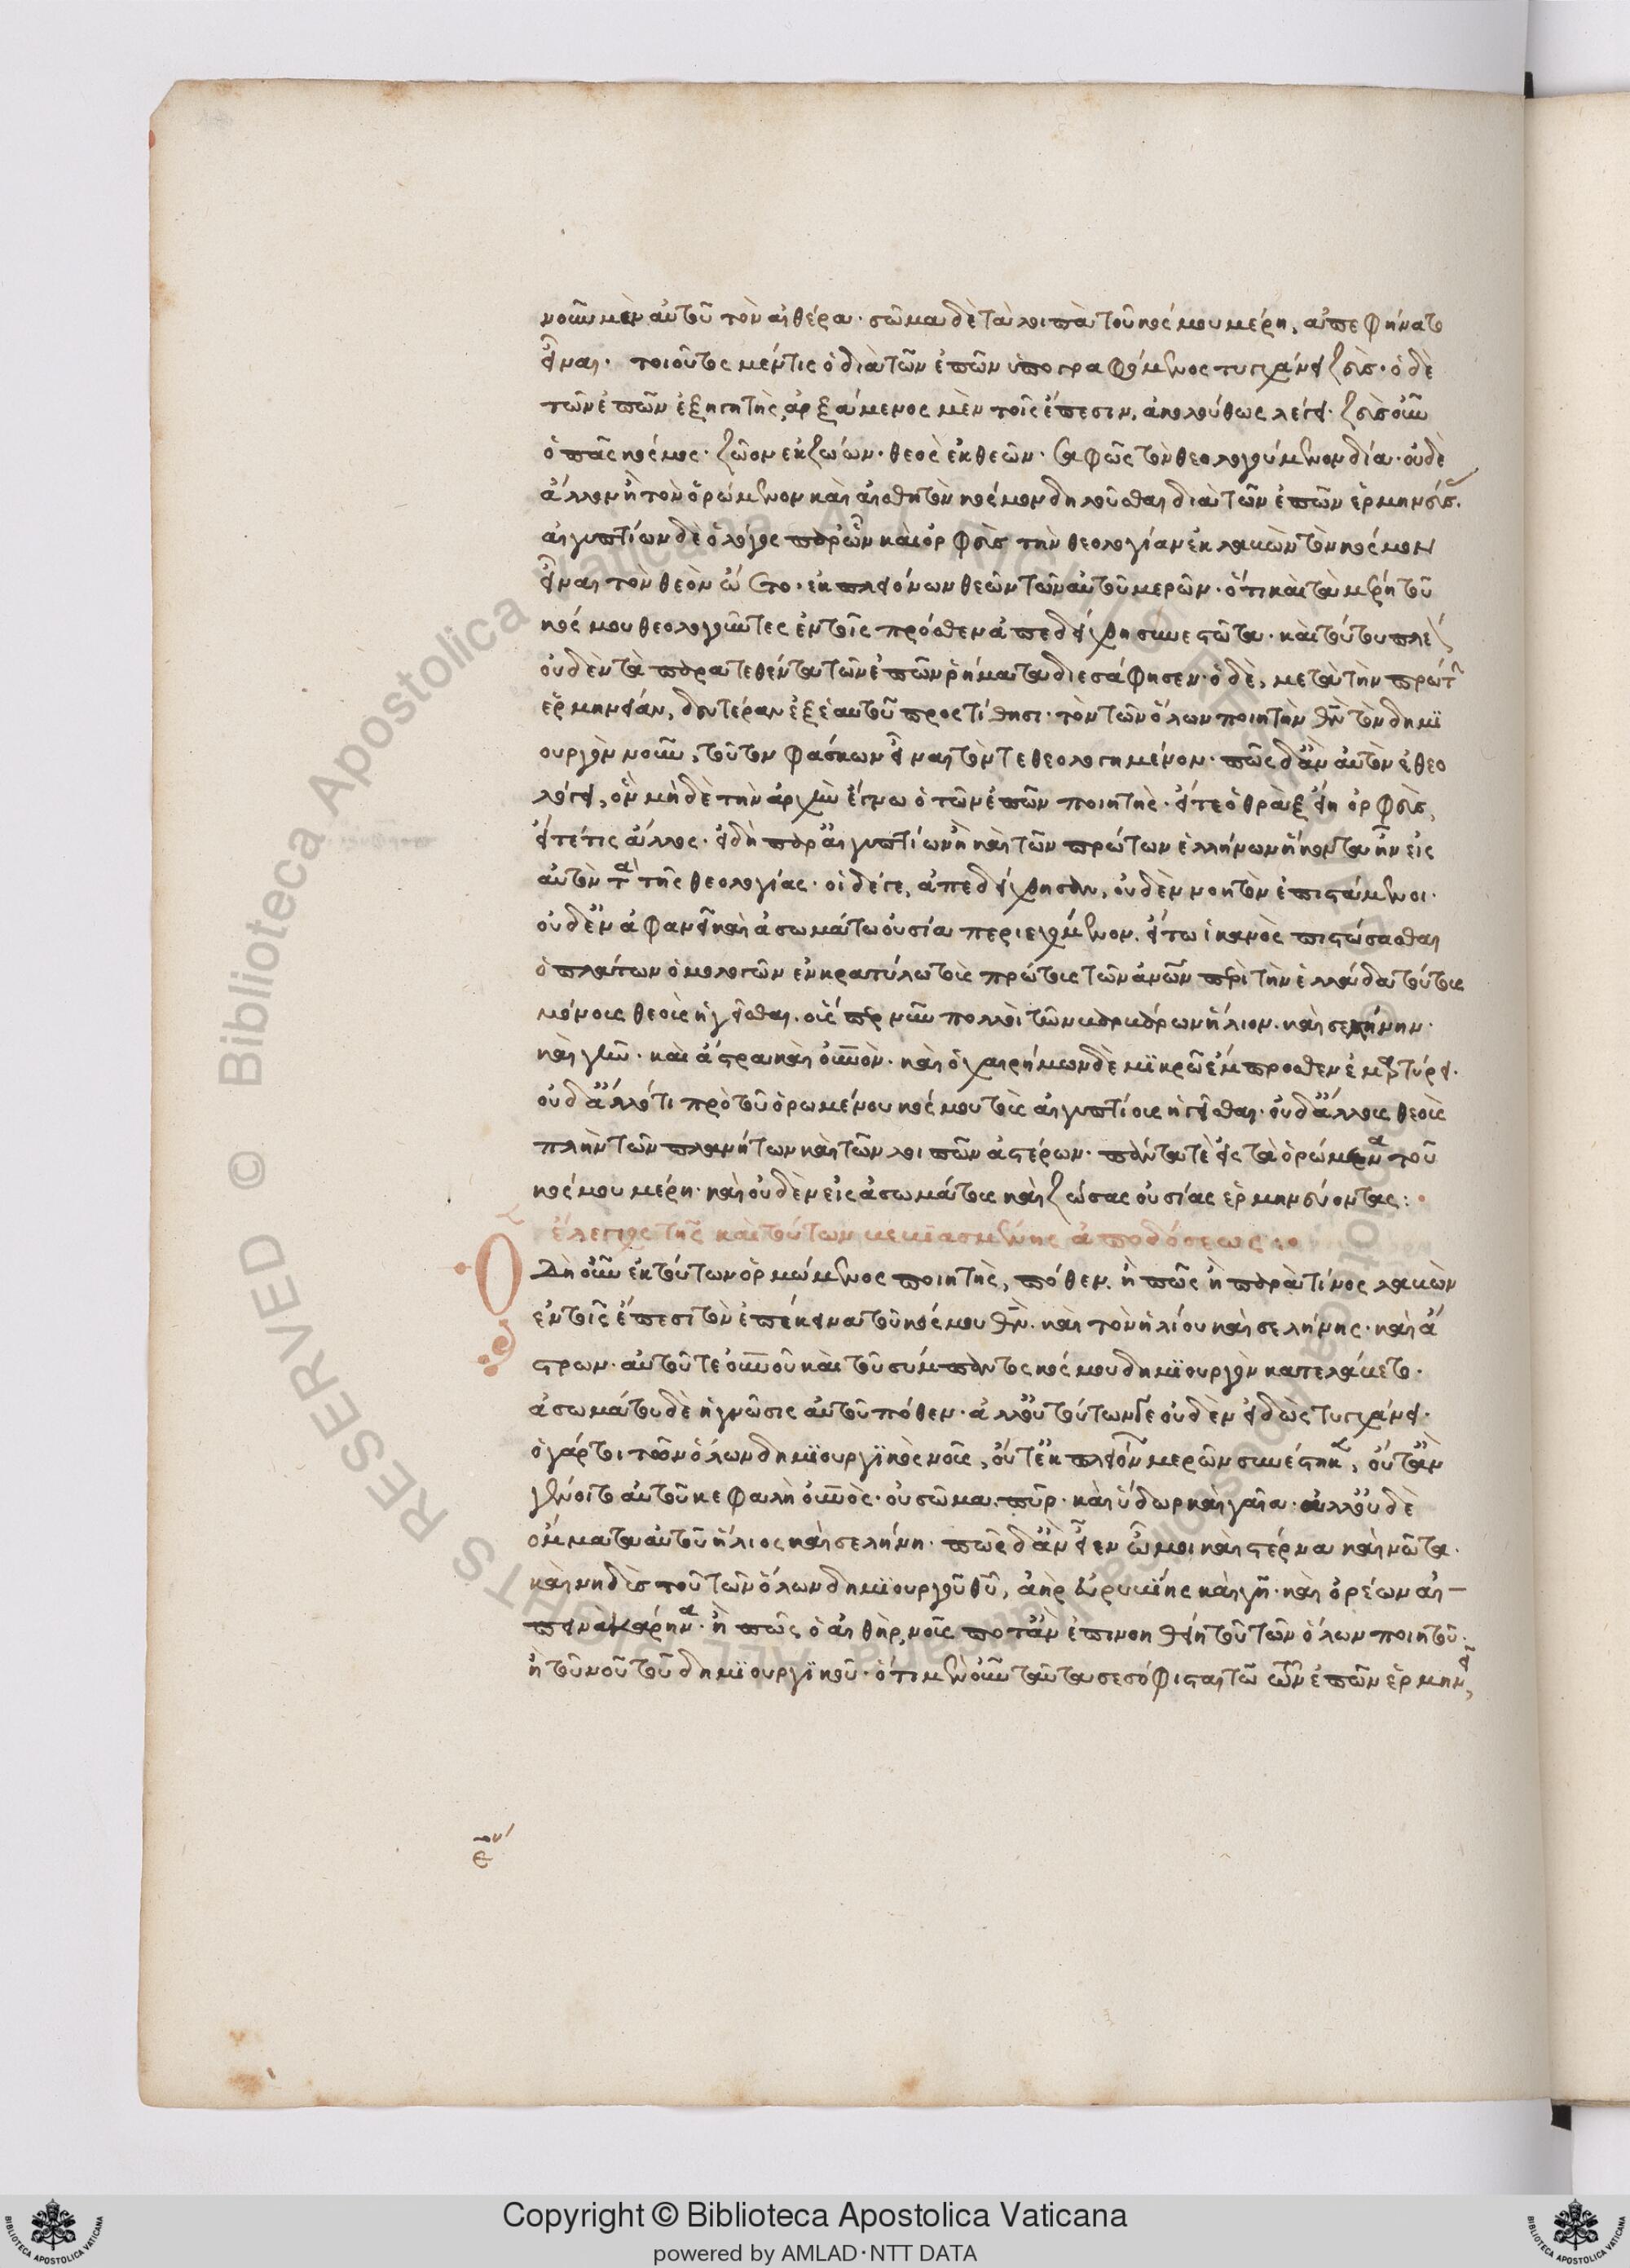 νοῦν μὲν αὐτοῦ τὸν αἰθέρα· σῶμα δὲ τὰ λοιπὰ τοῦ κόσμου μέρη, ἀπεφήνατο
εἶναι· τοιοῦτος μέν τις ὁ διὰ τῶν ἐπῶν ὑπογραφόμενος τυγχάνει ζεύς· ὁ δὲ
τῶν ἐπῶν ἐξηγητὴς, ἀρξάμενος μὲν τοῖς ἔπεσιν, ἀκολούθως λέγει· ζεὺς οὖν
ὁ πᾶς κόσμος· ζῶον ἐκ ζώων· θεὸς ἐκ θεῶν· σαφῶς τὸν θεολογούμενον δία· οὐδὲ
ἄλλον ἢ τὸν ὁρώμενον καὶ αἰσθητὸν κόσμον δηλοῦσθαι διὰ τῶν ἐπῶν ἑρμηνεύσ.
αἰγυπτίων δὲ ὁ λόγος παρ' ὧν καὶ ὀρφεὺς τὴν θεολογίαν ἐκλαβὼν τὸν κόσμον
εἶναι τὸν θεὸν ὤετο· ἐκ πλειόνων θεῶν τῶν αὐτοῦ μερῶν· ὅτι καὶ τὰ μέρη τοῦ
κόσμου θεολογοῦντες ἐν τοῖς πρόσθεν ἀπεδείχθη συνεστῶτα· καὶ τούτου πλέ
οὐδὲν τὰ παρατεθέντα τῶν ἐπῶν ῥήματα διεσάφησεν· ὁ δὲ, μετὰ τὴν πρώτ
ἑρμηνείαν, δευτέραν ἐξ ἑαυτοῦ προστίθησι· τὸν τῶν ὅλων ποιητὴν θν τὸν δημϊ
ουργὸν νοῦν, τοῦτον φάσκων εἶναι τόν τε θεολογημένον· πῶς δ' ἂν αὐτὸν ἐθεο
λόγει, ὃν μὴ δὲ τὴν ἀρχὴν ἔγνω ὁ τῶν ἐπῶν ποιητής· εἴτε ὁ θρὰιξ εἴη ὀρφεὺς,
εἴτέ τις ἄλλος· εἰ δὴ παρ' αἰγυπτίων ἢ καὶ τῶν πρώτων ἑλλήνων ἥκοντα ἦν εἰς
αὐτὸν τὰ τῆς θεολογίας· οἱ δέ γε, ἀπεδείχθησαν, οὐδὲν νοητὸν ἐπιστάμενοι·
οὐδ' ἐν ἀφανεῖ καὶ ἀσωμάτω οὐσία περιεχόμενον. ἔστω ἱκανὸς πιστώσασθαι
ὁ πλάτων ὁμολογῶν ἐν κρατύλω τοὺς πρώτους τῶν ἀνων περὶ τὴν ἑλλάδα τούτους
μόνους θεοὺς ἡγεῖσθαι. οὓς περ νῦν πολλοὶ τῶν βαρβάρων ἥλιον. καὶ σελήνην·
καὶ γῆν· καὶ ἄστρα καὶ οὐνὸν· καὶ ὁ χαιρήμων δὲ μϊκρῶ ἔμπροσθεν ἐμαρτύρει·
οὐδ' ἄλλό τι πρὸ τοῦ ὁρωμένου κόσμου τοὺς αἰγυπτίους ἡγεῖσθαι· οὐδ' ἄλλους θεοὺς
πλὴν τῶν πλανήτων καὶ τῶν λοιπῶν ἀστέρων· πάντα τὲ εἰς τὰ ὁρώμενα τοῦ
κόσμου μέρη· καὶ οὐδὲν εἰς ἀσωμάτους καὶ ζώσας οὐσίας ἑρμηνεύοντας:
ἔλεγχος τῆς καὶ τούτων βεβϊασμένης ἀποδόσεως
Ο δὴ οὖν ἐκ τούτων ὁρμώμενος ποιητὴς, πόθεν. ἢ πῶς ἢ παρὰ τίνος λαβὼν
ἐν τοῖς ἔπεσι τὸν ἐπέκεινα τοῦ κόσμου θν. καὶ τὸν ἡλίου καὶ σελήνης· καὶ ἄ
στρων· αὐτοῦ τε οὐνοῦ καὶ τοῦ σύμπαντος κόσμου δημϊουργὸν κατελάβετο·
ἀσωμάτου δὲ ἡ γνῶσις αὐτοῦ πόθεν· ἀλλ' οὐ τούτων γε οὐδὲν εἰδὼς τυγχάνει·
ὁ γάρ τοι τῶν ὅλων δημϊουργϊκὸς νοῦς, οὔτ' ἐκ πλειόνων μερῶν συνέστηκ, οὔτ' ἂν
γένοιτο αὐτοῦ κεφαλὴ οὐνὸς· οὐ σῶμα. πῦρ· καὶ ὕδωρ καὶ γαῖα· ἀλλ' οὐδὲ
ὄμματα αὐτοῦ ἥλιος καὶ σελήνη· πῶς δ' ἂν εἶεν ὦμοι καὶ στέρνα καὶ νῶτα·
καὶ νηδὺς τοῦ τῶν ὅλων δημϊουργοῦ θυ, ἀὴρ εὐρυβίης καὶ γῆ· καὶ ὀρέων αἰ-
πεινὰ κάρηνα· ἢ πῶς ὁ αἰθὴρ, νοῦς ποτ' ἂν ἐπινοηθείη τοῦ τῶν ὅλων ποιητοῦ·
ἢ τοῦ νοῦ τοῦ δημϊουργϊκοῦ· ὅτι μὲν οὖν ταῦτα σεσόφισται τῶ τῶν ἐπῶν ἑρμηνεῖ,